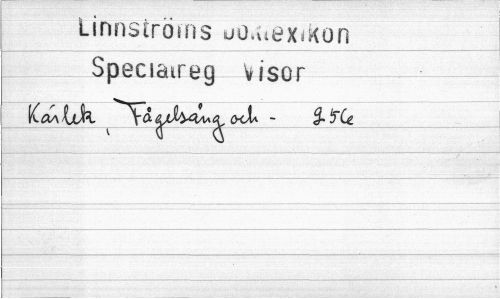 Linnströms Boklexikon
Specialreg Visor
Kärlek, Fågelsång och -